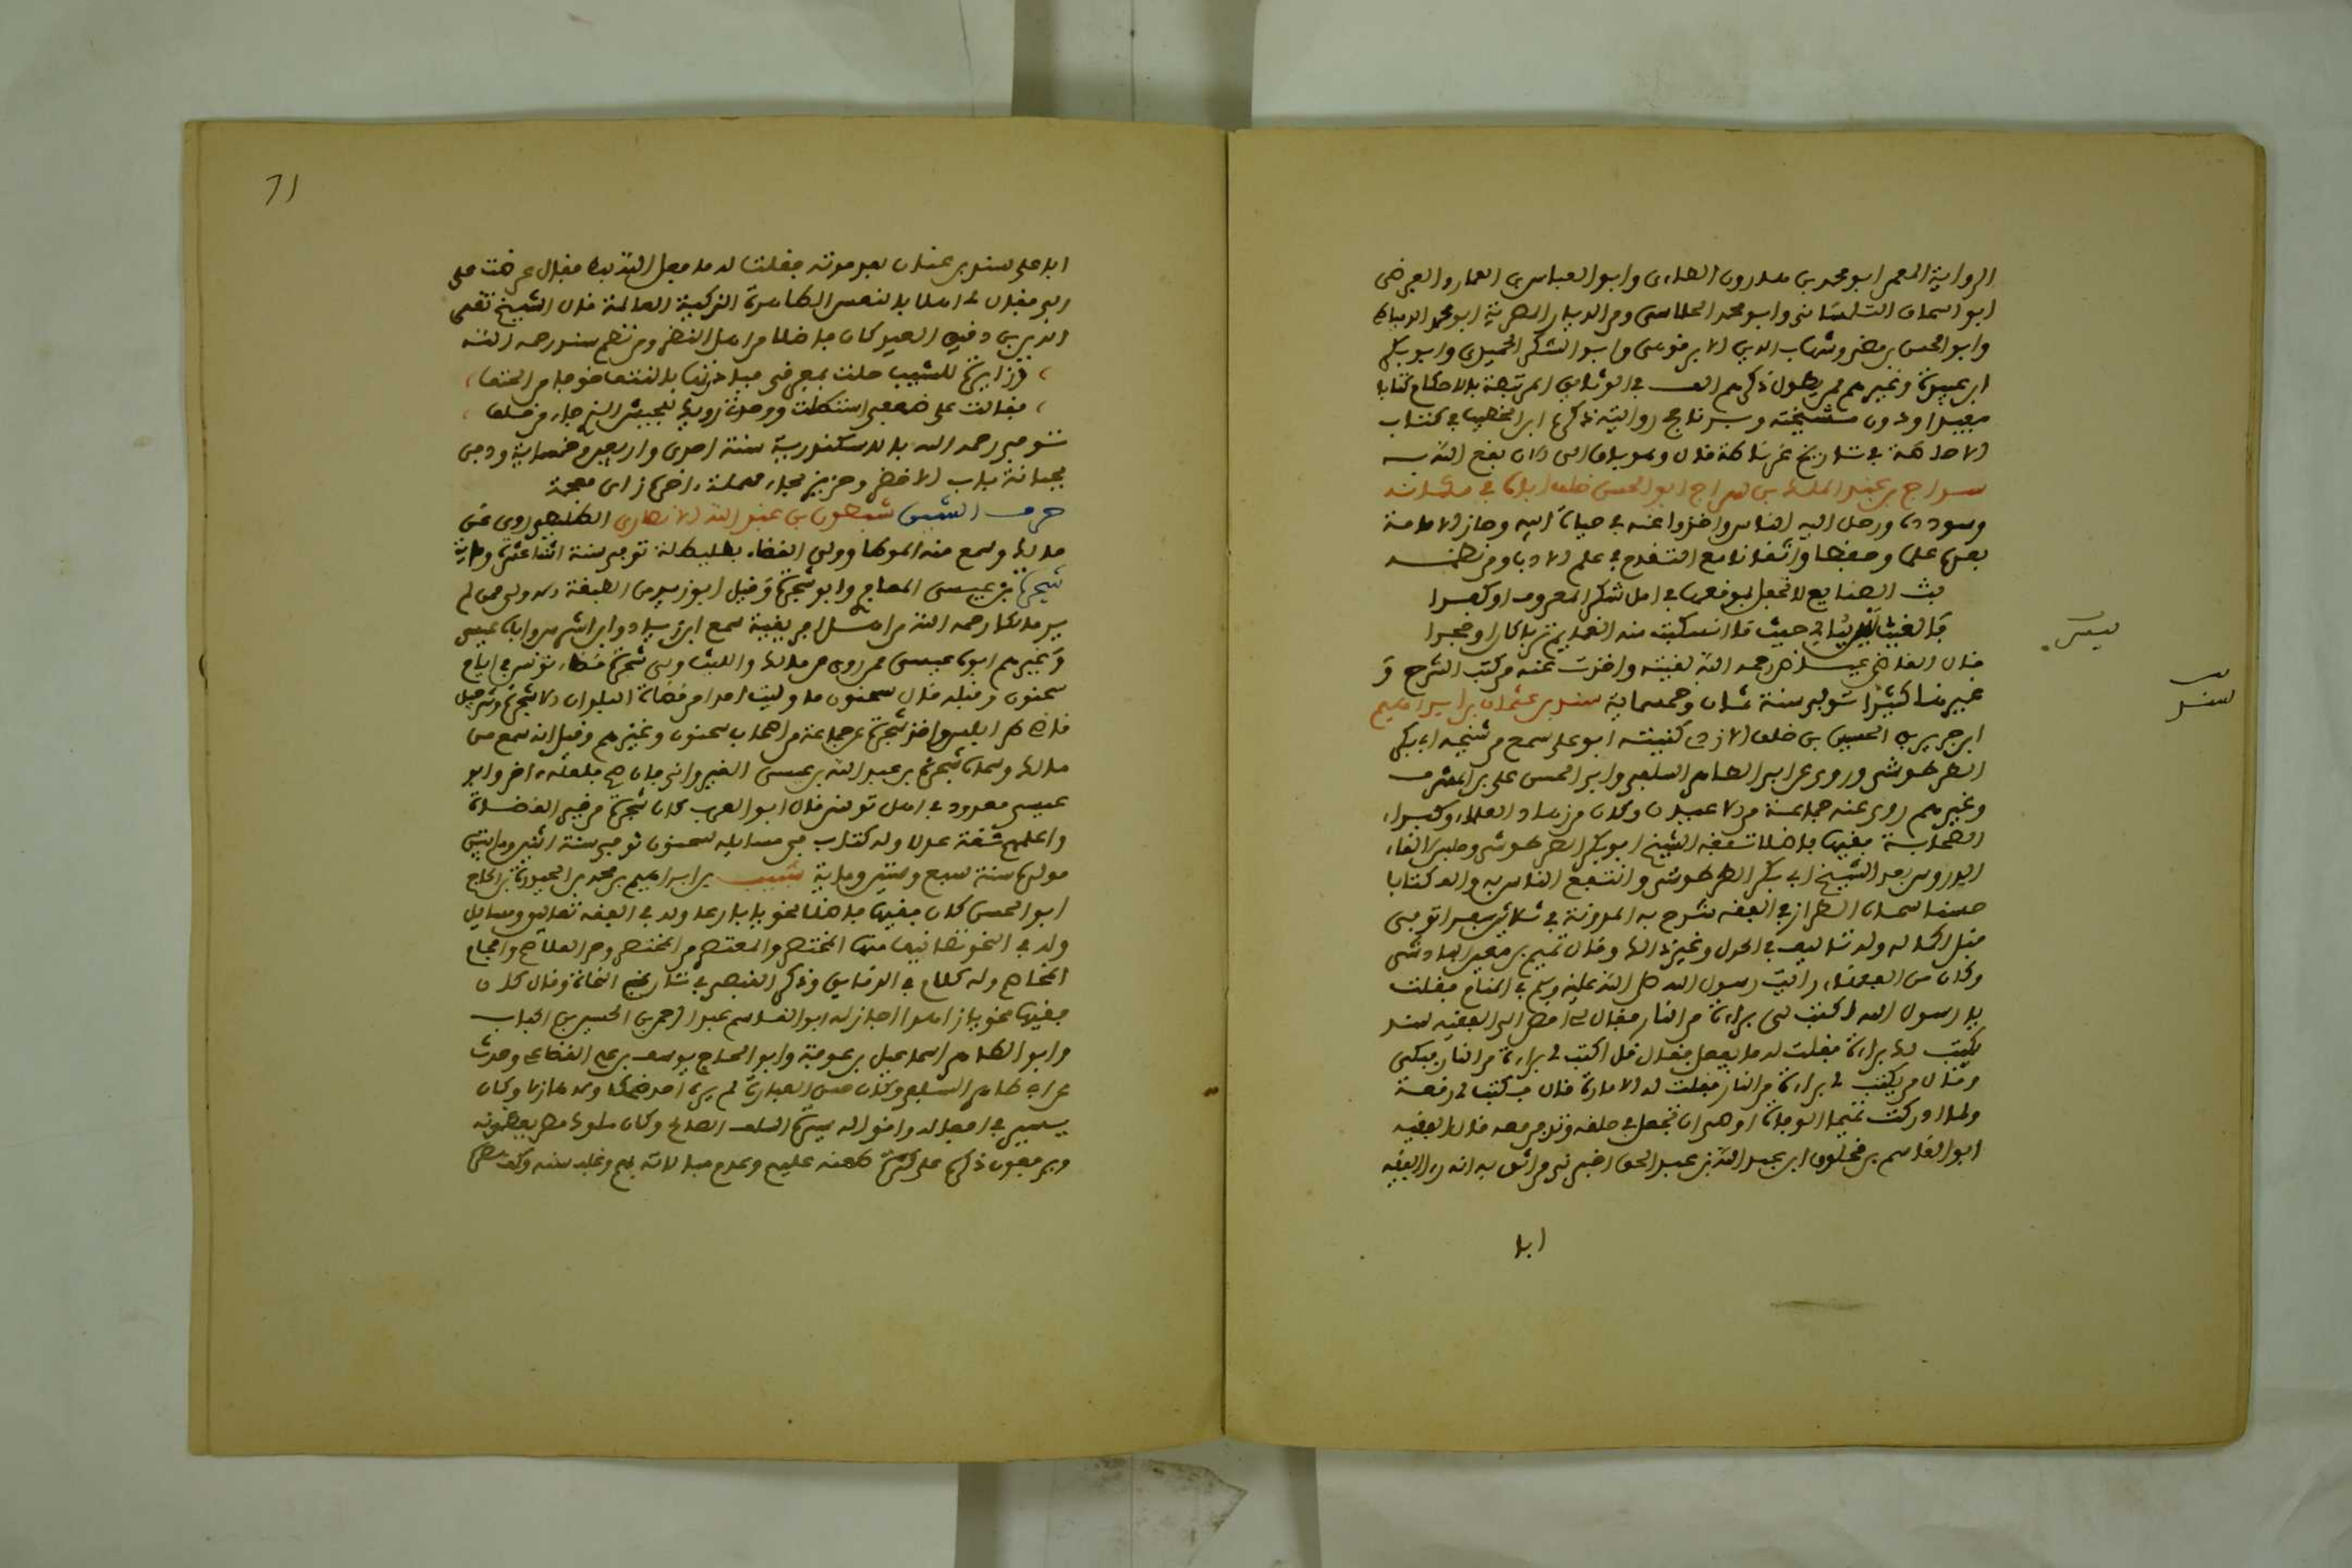 الرواية المعمر ابو محمد بن هارون الطاءى وابو العباس بن الغماز والعرضى
ابو اسحاق التلمسانى وابو محمد الخلاسى ومن الديار المصرية ابو محمد الدمياطى
وابو الحسن بن مضر وشهاب الدين الابرقوهى وابو الشكر الحميرى وابو بكر
ابن عبيدة وغيرهم ممن يطول ذكرهم الف فى الوثايق المرتبطة بالاحكام كتابا
مفيدا ودون مشيخته وبرنامج روايته ذكره ابن الخطيب فى كتاب
الاحاطة فى تاريخ غرناطة قال وهو باق الى الان نفع الله به
سراج بن عبد الملك بن سراج ابو الحسن خلف اباه فى مكانه
وسودده ورحل اليه الناس واخذوا عنه فى حياة ابيه وحاز الامامة
بعده علما وحفظا واتقانا مع التقدم فى علم الادب ومن نظمه
بث الصنايع لا تحفل بموقعها فى امل شكر المعروف او كفرا
كالغيث ليس يبالى حيث ما انسكبت منه الغمايم تربا كان او حجرا
قال القاضى عياض رحمه الله لقيته واخذت عنه من كتب الشرح و
غيرها كثيرا توفى سنة ثمان وخمسماية سند بن عثمان بن ابراهيم
ابن حريز بن الحسين بن خلف الازدى كنيته ابو على سمع من شيخه ابى بكر
الطرطوشى وروى عن ابى الطاهر السلفى وابى الحسن على بن المشرف
وغيرهم روى عنه جماعة من الاعيان وكان من زهاد العلماء وكبراء
الصحابة فقيها فاضلا تفقه بالشيخ ابى بكر الطرطوشى وجلس لالقاء
الدروس بعد الشيخ ابى بكر الطرطوشى وانتفع الناس به والف كتابا
حسنا سماه الطراز فى الفقه شرح به المدونة فى ثلاثين سفرا توفى
قبل اكماله وله تاليف فى الجدل وغير ذلك وقال تميم بن معين البادسى
وكان من الفقهاء رايت رسول الله صلى الله عليه وسلم فى المنام فقلت
يا رسول الله اكتب لى براءة من النار فقال لى امض الى الفقيه سند
يكتب لك براءة فقلت له ما يفعل فقال قل له اكتب لى براءة من النار فبكى
وقال من يكتب لى براءة من النار فقلت له الامارة قال فكتب لى رقعة
ولما ادركت تميما الوفاة اوصى ان تجعل فى حلقه وتدفن معه قال الفقيه
ابو القاسم بن مخلوف ابن عبد الله بن عبد الحق اخبرنى من اثق به انه راى الفقيه
ابا
سند
71
ابا على سند بن عنان بعد موته فقلت له ما فعل الله بك فقال عرضت على
ربى فقال لى اهلا بالنفس الطاهرة الزكية العالمة قال الشيخ تقى
الدين بن دقيق العيد كان فاضلا من اهل النظر ومن نظم سند رحمه الله
وزايرة للشيب حلت بمفرقى فبادرتها بالنتف خوفا من الحتف
فقالت على ضعفى استطلت ووحدتى رويدك للجيش الذى جاء من خلفى
توفى رحمه الله بالاسكندرية سنة احدى واربعين وخمسماية ودفن
بجبانة باب الاخضر وحريز بحاء مهملة واخره زاى معجمة
حرف الشين شبطون بن عبد الله الانصارى الطليطلى روى عن
مالك وسمع منه الموطا وولى القضاء بطليطلة توفى سنة اثنا عشر ومايتين
شجرة بن عيسى المعافرى وابو شجرة وقيل ابو زيد من الطبقة الاولى ممن لم
ير مالكا رحمه الله من اهل افريقية سمع ابن زياد وابن اشرس واباه عيسى
وغيرهم ابوه عيسى ممن روى عن مالك والليث وولى شجرة قضاء تونس فى ايام
سحنون وقبله قال سحنون ما وليت احدا من قضاة البلدان الا شجرة وشرحبيل
قاضى طرابلس واخذ شجرة عن جماعة من اصحاب سحنون وغيرهم وقيل انه سمع من
مالك وسماه شجرة بن عبد الله بن عيسى القيروانى فان صح فلعله اخر وابو
عيسى معدود فى اهل تونس قال ابو العرب كان شجرة من خير القضاة
واعلمهم ثقة عدلا وله كتاب فى مسايله لسحنون توفى سنة اثنين ومايتين
مولده سنة سبع وستين وماية شبيب بن ابراهيم بن محمد بن الحيدرة بن الحاج
ابو الحسن كان فقيها فاضلا نحويا بارعا وله فى الفقه تعاليق ومسايل
وله فى النحو تصانيف منها المختصر والمعتصر من المختصر وحز الغلاصم وافحام
المخاصم وله كلام فى الرقايق وذكره القبصى فى تاريخ النحاة وقال كان
فقيها نحويا زاهدا اجاز له ابو القاسم عبد الرحمن بن الحسين بن الحباب
وابو الطاهر اسماعيل بن عوف وابو الحجاج يوسف بن على القضاعى وحدث
عن ابى طاهر السلفى وكان حسن العبارة لم يره احد ضاحكا ولا هازلا وكان
يسير فى افعاله واقواله سيرة السلف الصالح وكان ملوك مصر يعظمونه
ويرفعون ذكره على كثرة طعنه عليهم وعدم مبالاته بهم